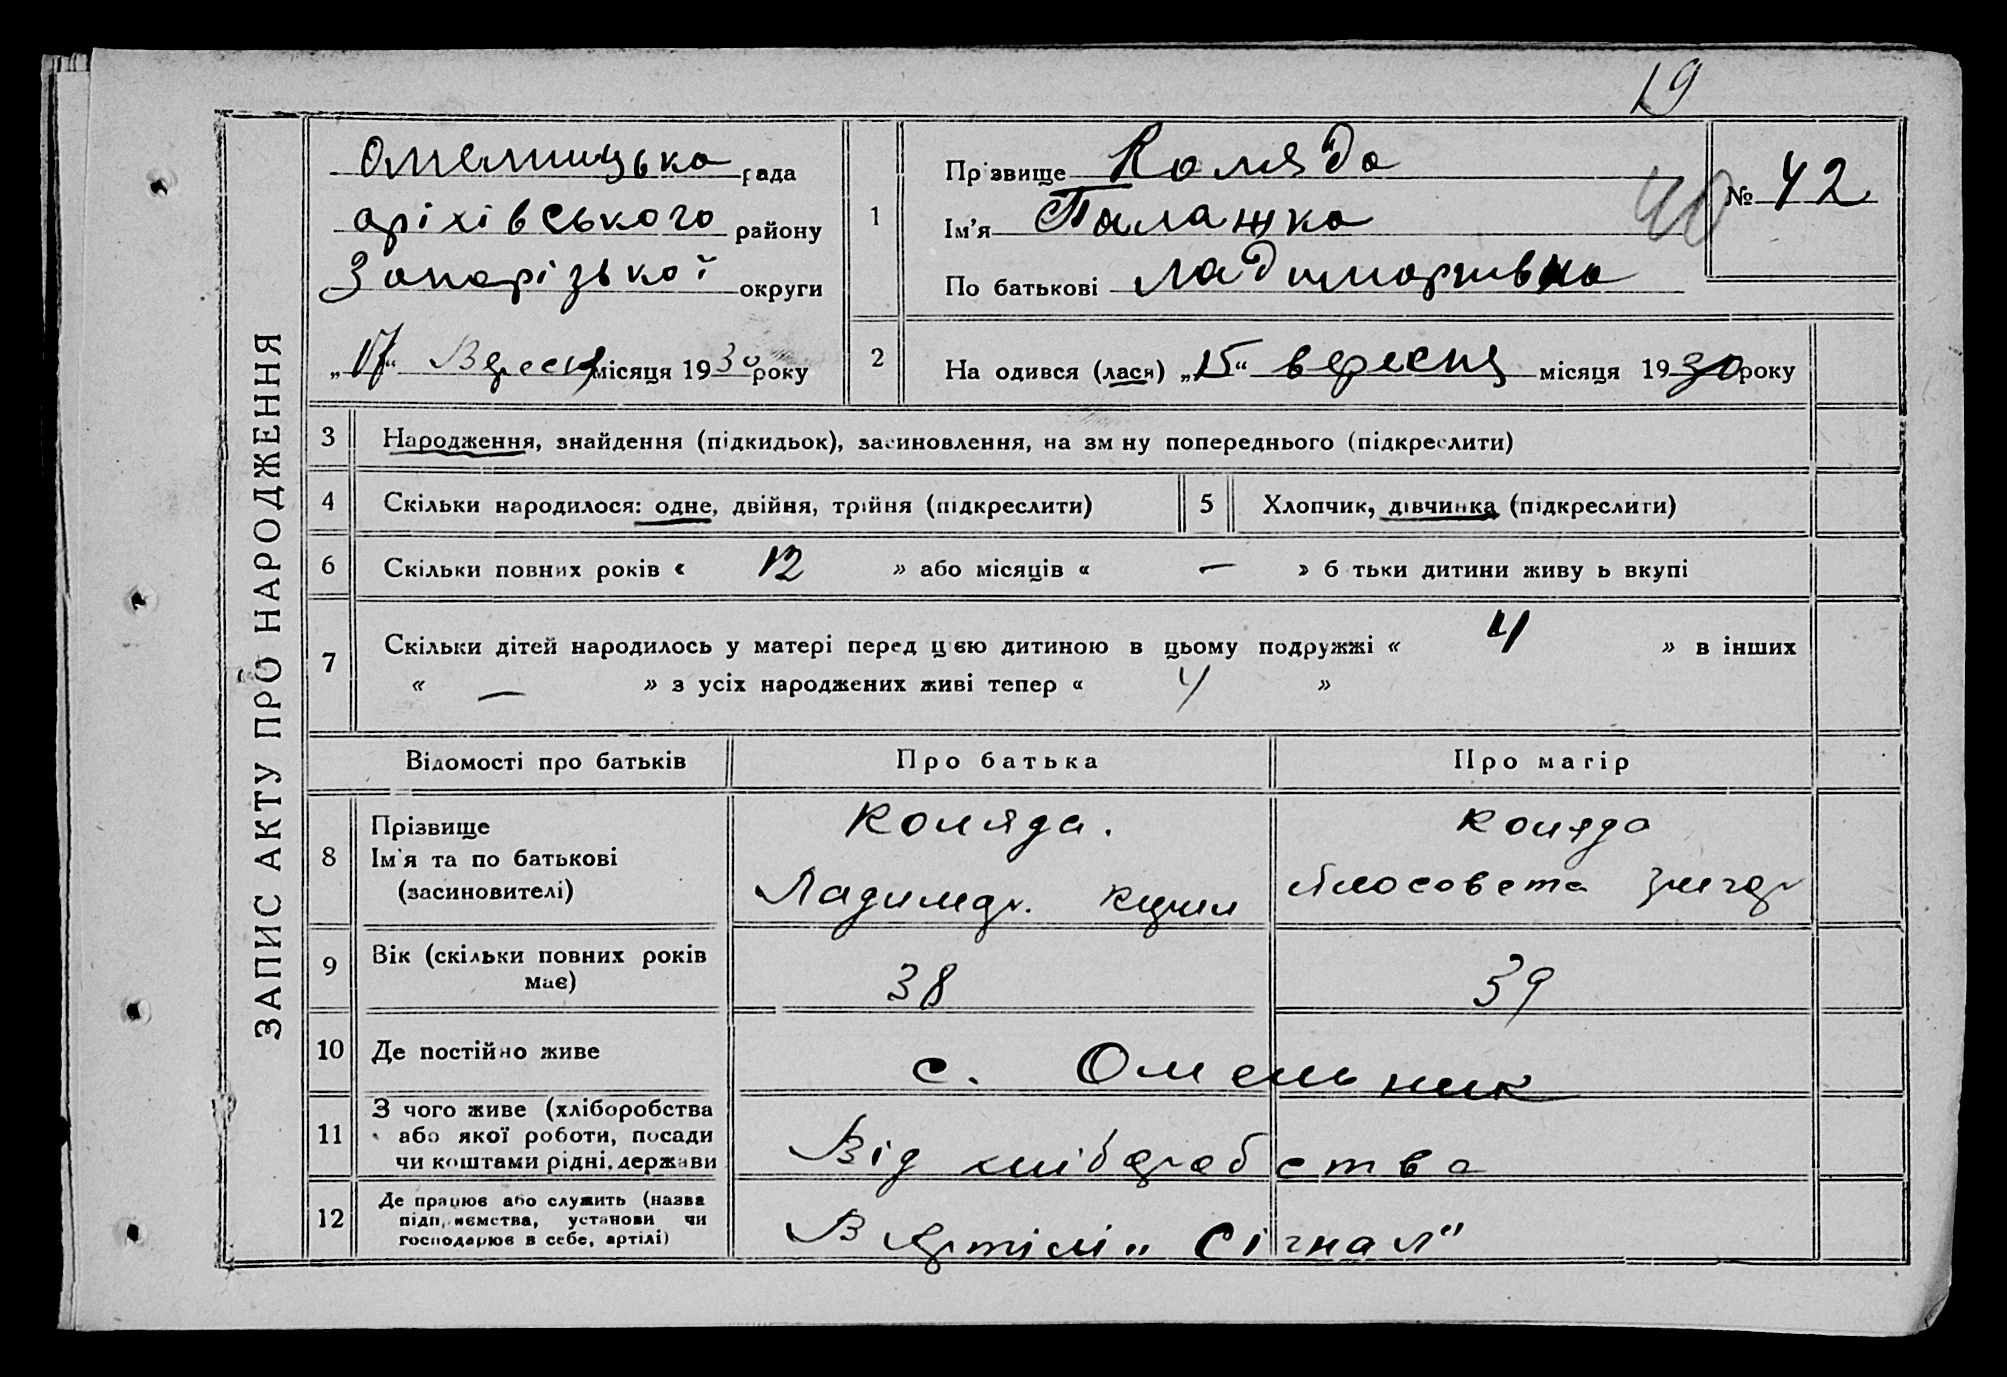 19
ЗАПИС АКТУ ПРО НАРОДЖЕННЯ
Омелницька рада
оріхівського району
Запорізької округи
„17“ Вересня місяця 1930 року
1
Прізвище Коляда
Ім’я Палажка
По батькові Ладимировна
40
№ 42
2
На одився (лася) „15“ вересня місяця 1930 року
3 Народження, знайдення (підкидьок), засиновлення, на зм ну попереднього (підкреслити)
4 Скільки народилося: одне, двійня, трійня (підкреслити) 5 Хлопчик, дівчинка (підкреслити)
6 Скільки повних років « 12 » або місяців « — » б тьки дитини живу ь вкупі
7 Скільки дітей народилось у матері перед цією дитиною в цьому подружжі « 4 » в інших
« — » з усіх народжених живі тепер « 4 »
Відомості про батьків Про батька Про матір
8 Прізвище
Ім'я та по батькові
(засиновителі)
Коляда.
Ладимер.
Коляда
9 Вік (скільки повних років
має)
38 39
10 Де постійно живе с. Омельник
11 З чого живе (хліборобства
або якої роботи, посади
чи коштами рідні, держави
Від хліборобства
12 Де працює або служить (назва
підп, иємства, установи чи
господарює в себе, артілі)
В артілі „Сігнал"